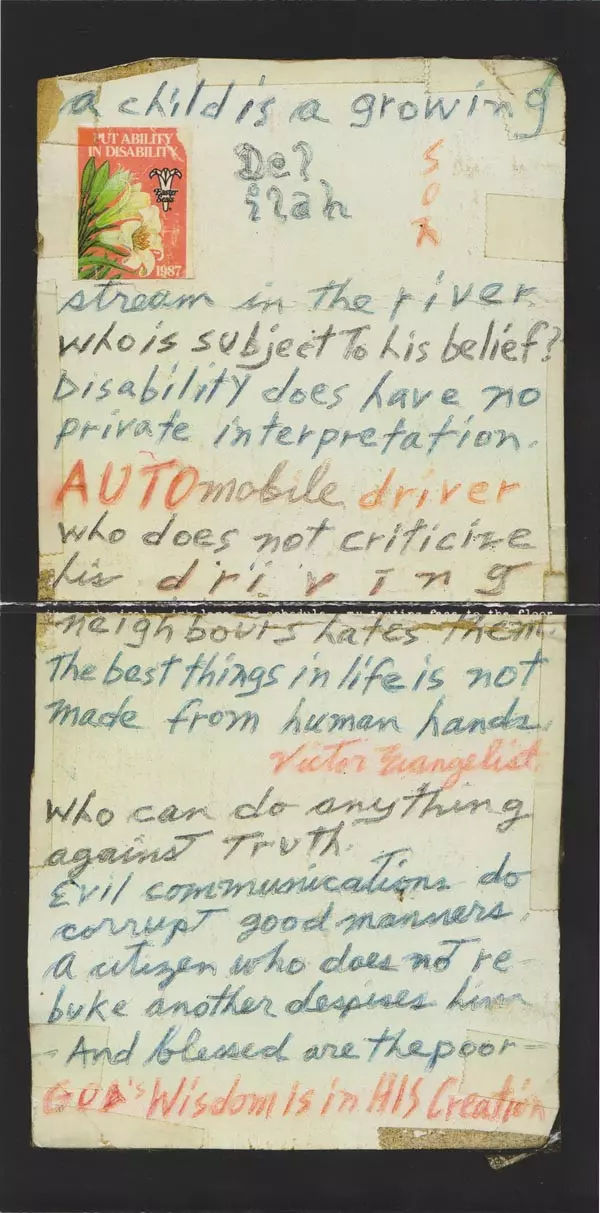 a child is a growing
PUT ABILITY
IN DISABILITY
Easter
Seals
1987
stream in the river
who is subject To his belief?
Disability does have no
private interpretation.
AUTOmobile driver
who does not criticize
his driving
neighbours hates them.
The best things in life is not
made from human hands.
Victor Evangelist
Who can do anything
against Truth.
Evil communications do
corrupt good manners.
A citizen who does not re-
buke another despises him
- And blessed are the poor -
GOD's Wisdom Is in HIS Creation